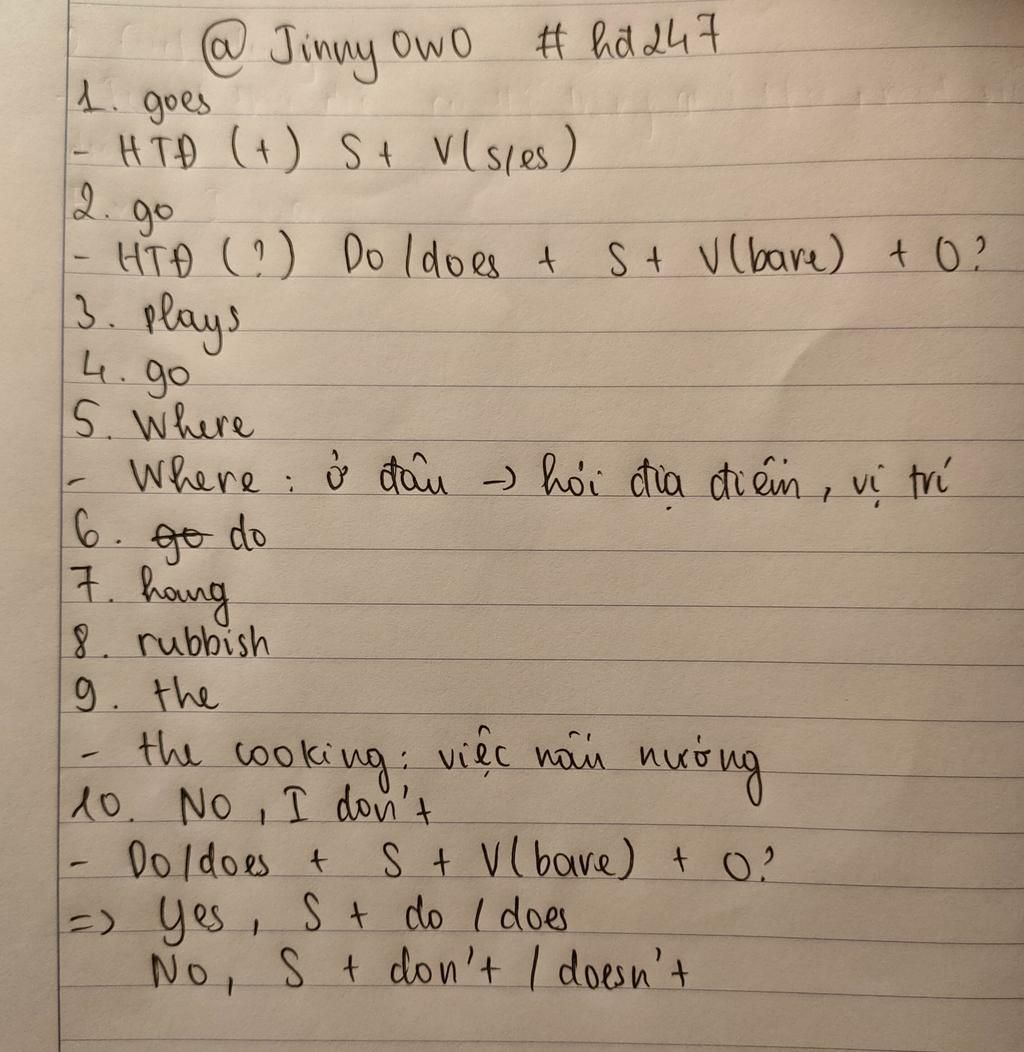 @ Jinny OWO # hd247
1. goes
- HTĐ (+) S + V(s/es)
2. go
- HTĐ (?) Do/does + S + V(bare) + O?
3. plays
4. go
5. Where
- Where : ở đâu -> hỏi địa điểm, vị trí
6. go do
7. hang
8. rubbish
9. the
- the cooking : việc nấu nướng
10. No, I don't
- Do/does + S + V(bare) + O?
=> Yes, S + do / does
No, S + don't / doesn't